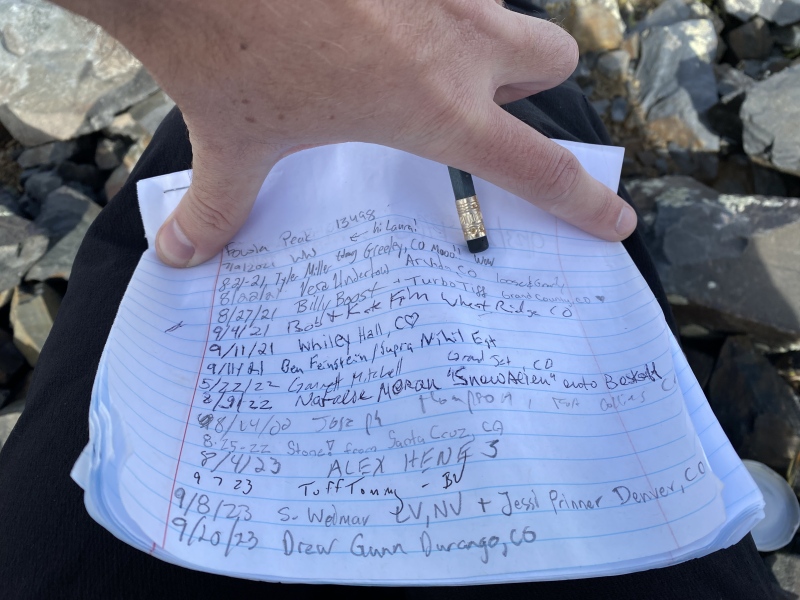 Peak 13498
7/9/2021 WW ← hi Laura!
8-21-21, Tyler Miller Greeley, CO
8/22/21 Vesa Arvada, CO
8/27/21 Billy Boast + Turbo Tiff Grand County, CO
9/4/21 Bob + Kate Film Wheat Ridge CO
9/11/21 Whiley Hall, CO
9/11/21 Ben Feinstein/Supra Nihil Est
5/22/22 Garrett Mitchell Grand Jct CO
8/9/22 Natalie Moran "SnowAlien"
8/14/22 Fort Collins
8-25-22 Stone! from Santa Cruz, CA
8/4/23 ALEX HENG 3
9 7 23 Tuff Tommy - BV
9/8/23 S. Wedmar LV, NV + Jessi Prinner Denver, CO
9/20/23 Drew Gunn Durango, CO